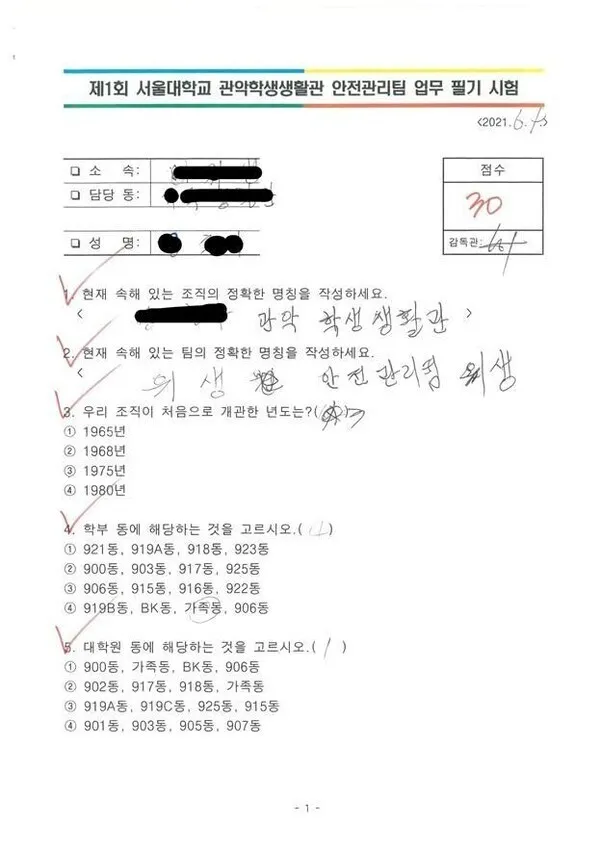 제1회 서울대학교 관악학생생활관 안전관리팀 업무 필기 시험
<2021.6.
❏ 소 속:
❏ 담당 동:
❏ 성 명:
점수
30
감독관:
1. 현재 속해 있는 조직의 정확한 명칭을 작성하세요.
< 관악 학생생활관 >
2. 현재 속해 있는 팀의 정확한 명칭을 작성하세요.
< 위생 안전관리팀 위생
3. 우리 조직이 처음으로 개관한 년도는?( )3
① 1965년
② 1968년
③ 1975년
④ 1980년
4. 학부 동에 해당하는 것을 고르시오.( )
① 921동, 919A동, 918동, 923동
② 900동, 903동, 917동, 925동
③ 906동, 915동, 916동, 922동
④ 919B동, BK동, 가족동, 906동
5. 대학원 동에 해당하는 것을 고르시오.( 1 )
① 900동, 가족동, BK동, 906동
② 902동, 917동, 918동, 가족동
③ 919A동, 919C동, 925동, 915동
④ 901동, 903동, 905동, 907동
- 1 -